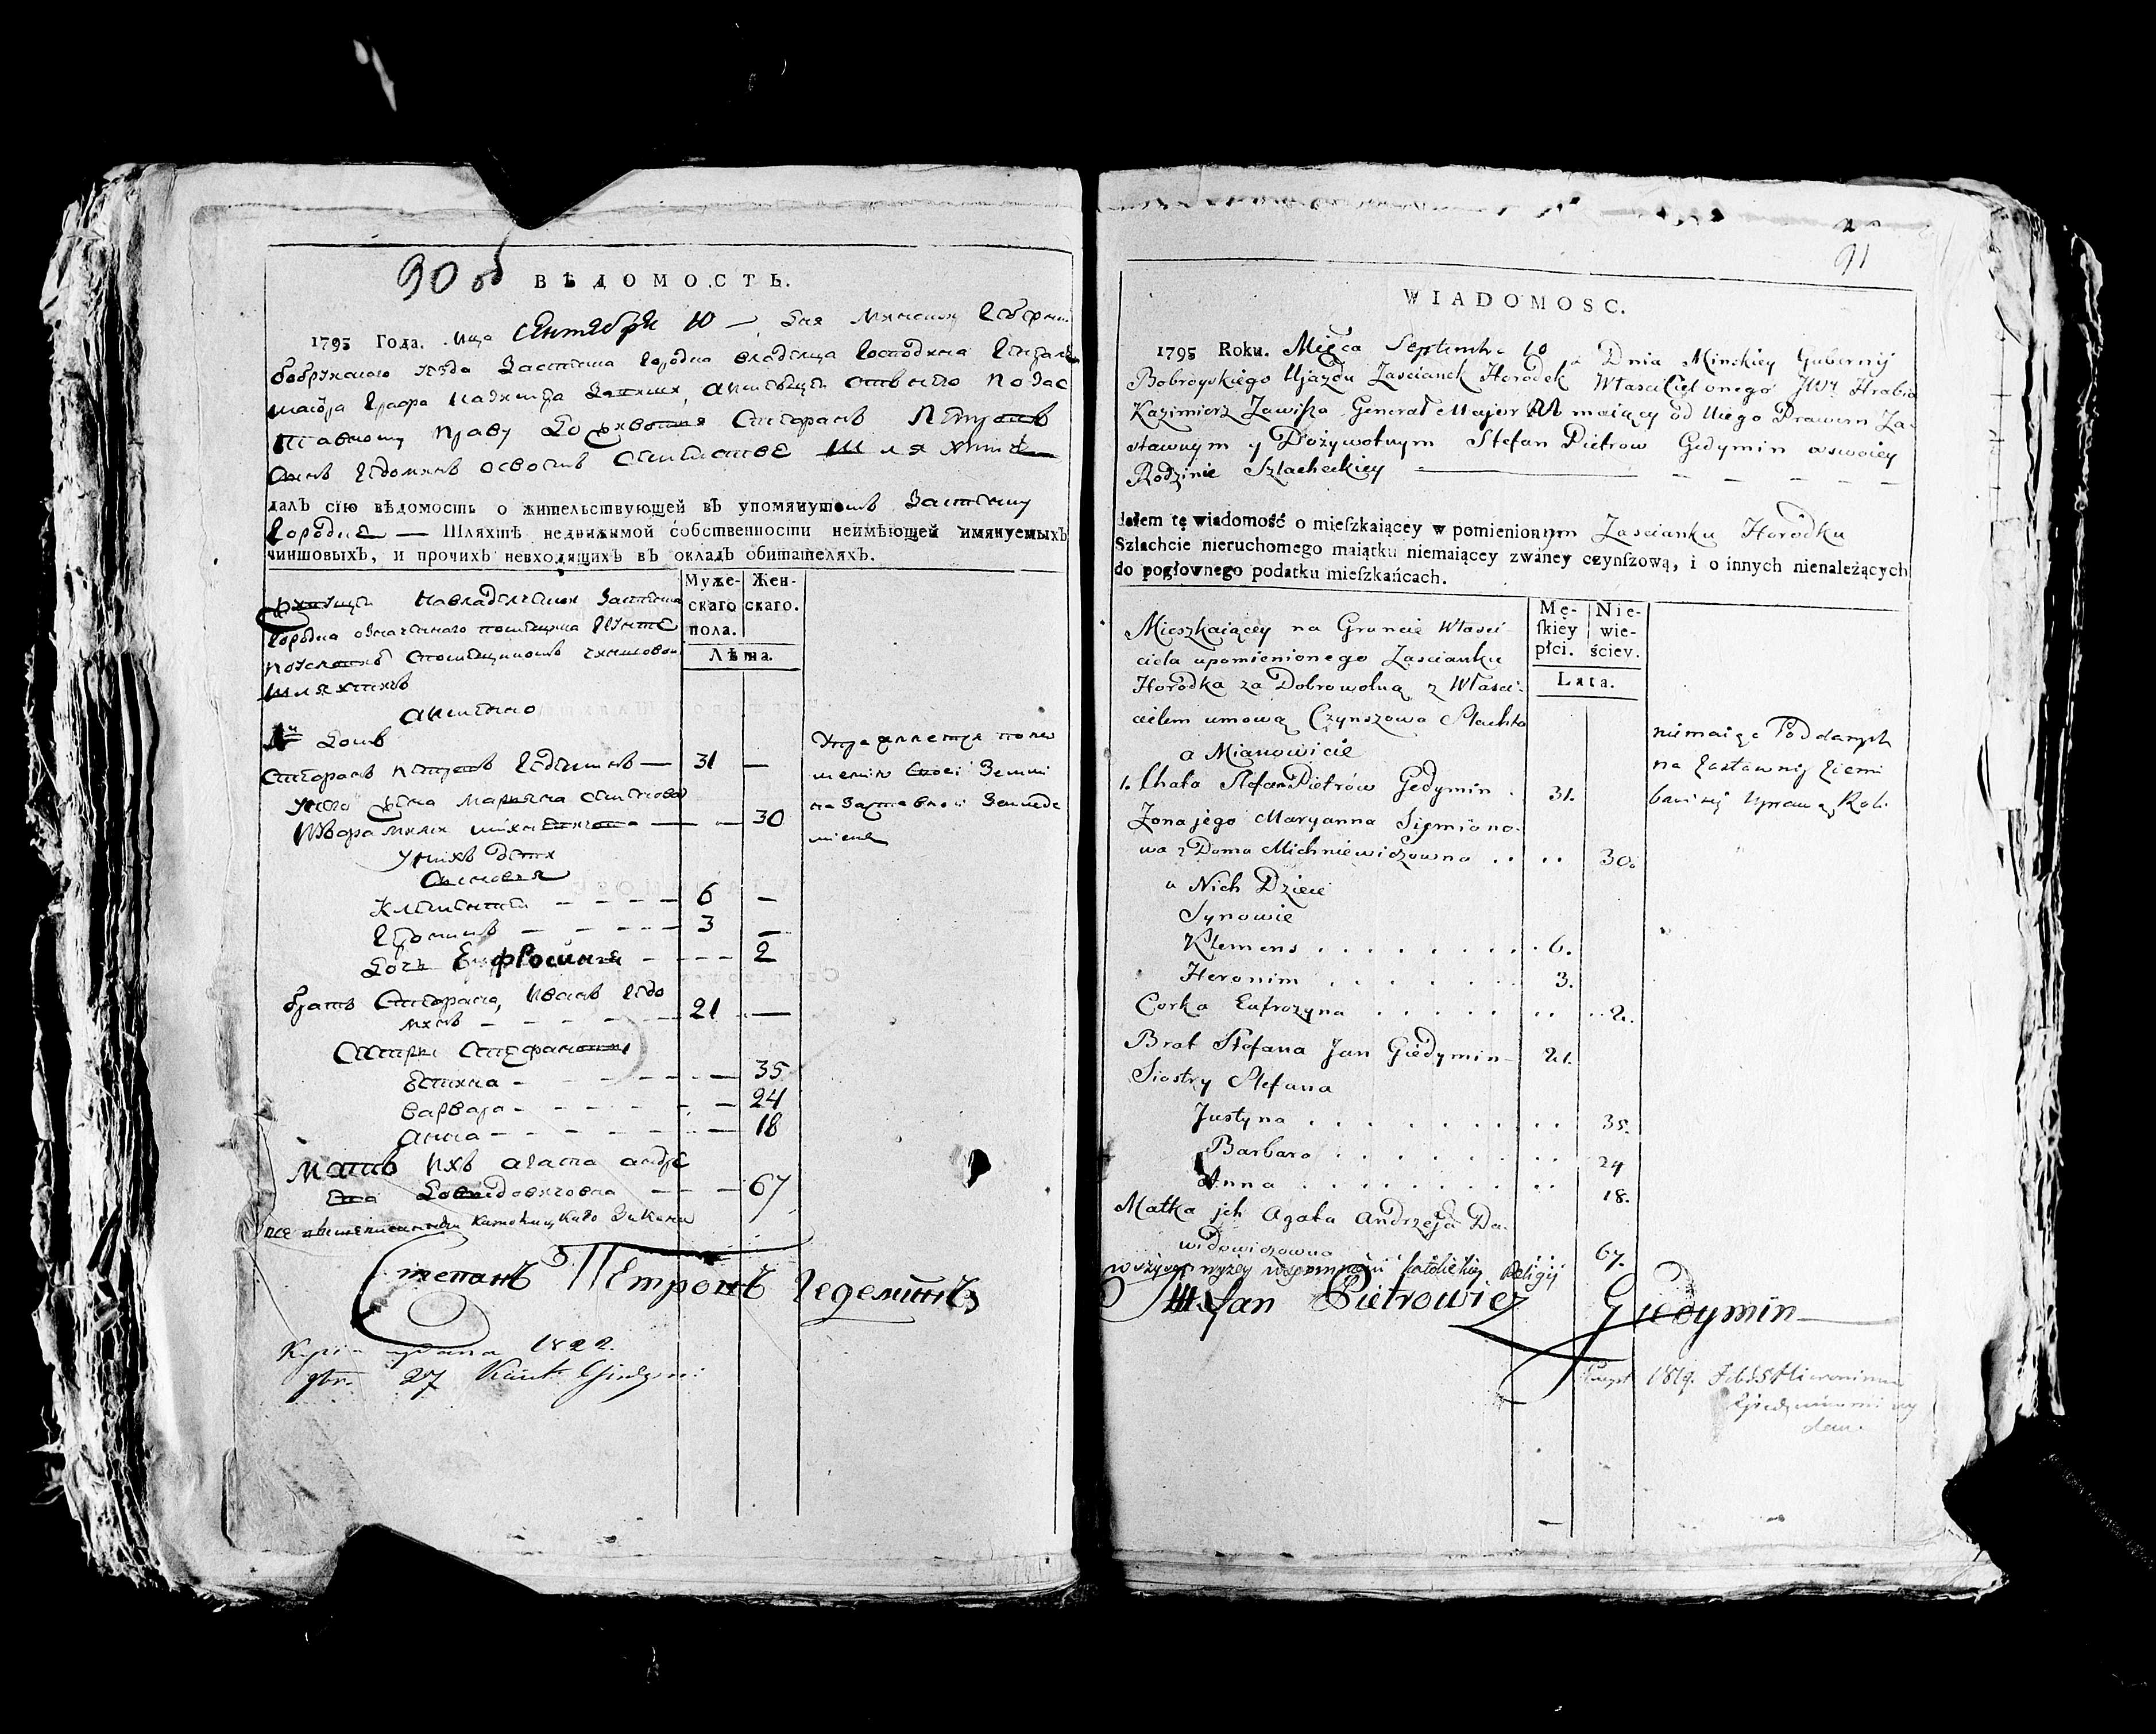 90 об
ВѢДОМОСТЬ.
1795 Года. Мца Сентября 10 — Дня Минской Губерніи
Бобруйскаго уезда Застенка Городка владельца Господина Генералъ
Маіора Графа Казимера Завиши, а имѣющи отъ него по Зас
тавному праву Стефанъ Петровъ
Сынъ Гедыминъ Шляхтичъ
далъ сію вѣдомость о жительствующей въ упомянутомъ Застенку
Городке — Шляхтѣ недвижимой собственности неимѣющей имянуемыхъ
чиншовыхъ, и прочихъ невходящихъ въ окладъ обитателяхъ.
Муже-
скаго
пола.
Жен-
скаго.
Лѣта.
Живущи Застенка
Городка означенного
чиншовой
шляхтичъ
а имѣнно
1й Домъ
Стефанъ Петровъ Гедыминъ — 31 —
У него жена Марьяна Семенова — — 30
У нихъ дети
Сыновья
Климентій - - - - 6 —
Героникъ - - - - 3 —
Дочь Ефросиния - - - 2
братъ Стефана, Иванъ Геды
минъ - - - - 21 —
Сестры Стефановы
Юстина - - - - 35
Варвара - - - - 24
Анна - - - - 18
Мать ихъ Агата Андре
ева Давидовичовна - - - 67
все вышеписанныи Католицкаго Закона
на Заставной Земле
Степанъ Петровъ Гедеминъ
1822.
27
91
WIADOMOSC.
1795 Roku. Mięca Septembra 10 Dnia Minskiey Gubernij
Bobroyskiego Ujazdu Zascianek Horodek Własciciélonego JWo Hrabia
Kazimierz Zawisza Generał Major maiący od Niego Prawem Za-
stawnym y Dożywotnym Stefan Pietrow Gedymin o swoiey
Rodzinie Szlacheckiey
dałem tę wiadomość o mieſzkaiącey w pomienionym Zascianku Horodku
Szlachcie nieruchomego maiątku niemaiącey zwaney czynſzową, i o innych nienależących
do pogłownego podatku mieſzkańcach.
Mę-
ſkiey
płci.
Nie-
wie-
ściey.
Lata.
Mieszkaiącey na Gruncie Własci-
ciela upomienionego Zascianku
Horodka za Dobrowolną z Własci-
cielem umową Czynszowa Slachta
a Mianowicie
1. Chata Stefan Pietrów Gedymin . 31.
Zona jego Maryanna Siemiono-
wa z Doma Michniewiczowna . . . . 30.
u Nich Dzieci
Synowie
Klemens . . . . . . . 6.
Heronim . . . . . . . 3.
Corka Eufrozyna . . . . . . . 2.
Brat Stefana Jan Giedymin — 21.
Siostry Stefana
Justyna . . . . . . . 35.
Barbara . . . . . . . 24
Anna . . . . . . . 18.
Matka jch Agata Andrzeja Da-
widowiczowna . . 67.
wszyscy wyżey wspomnieni katolickiey Religij
niemaiąc Poddanych
na Zastawnej Ziemi
bawi się Uprawą Roli
Stefan Pietrowicz Giedymin
1819.